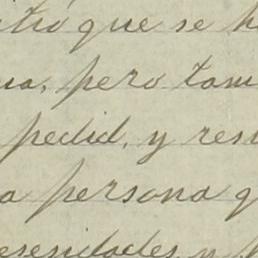 que se h
, pero tam
pedid, y res
a persona q